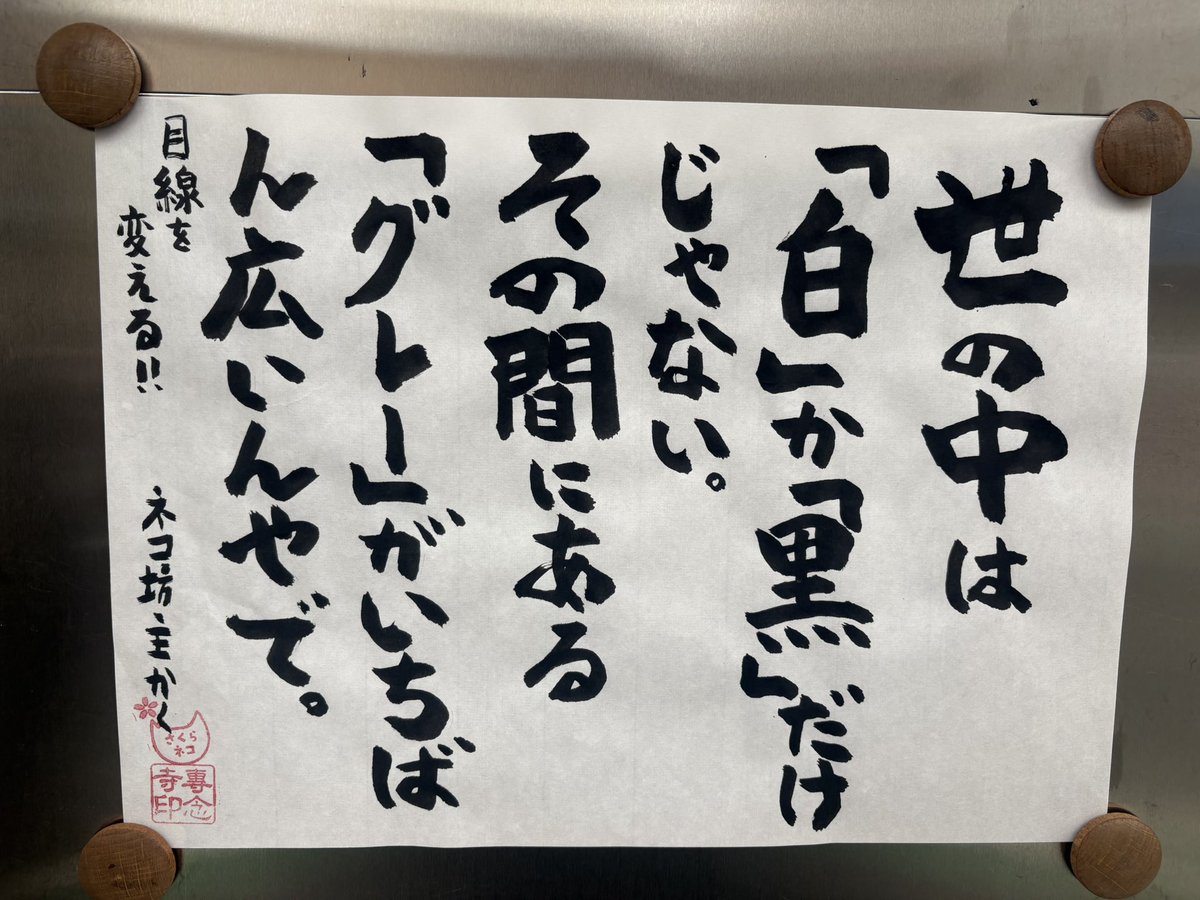 世の中は
「白」か「黒」だけ
じゃない。
その間にある
「グレー」がいちば
ん広いんやで。
目線を
変える!!
ネコ坊主かく
さくら
ネコ
専念
寺印